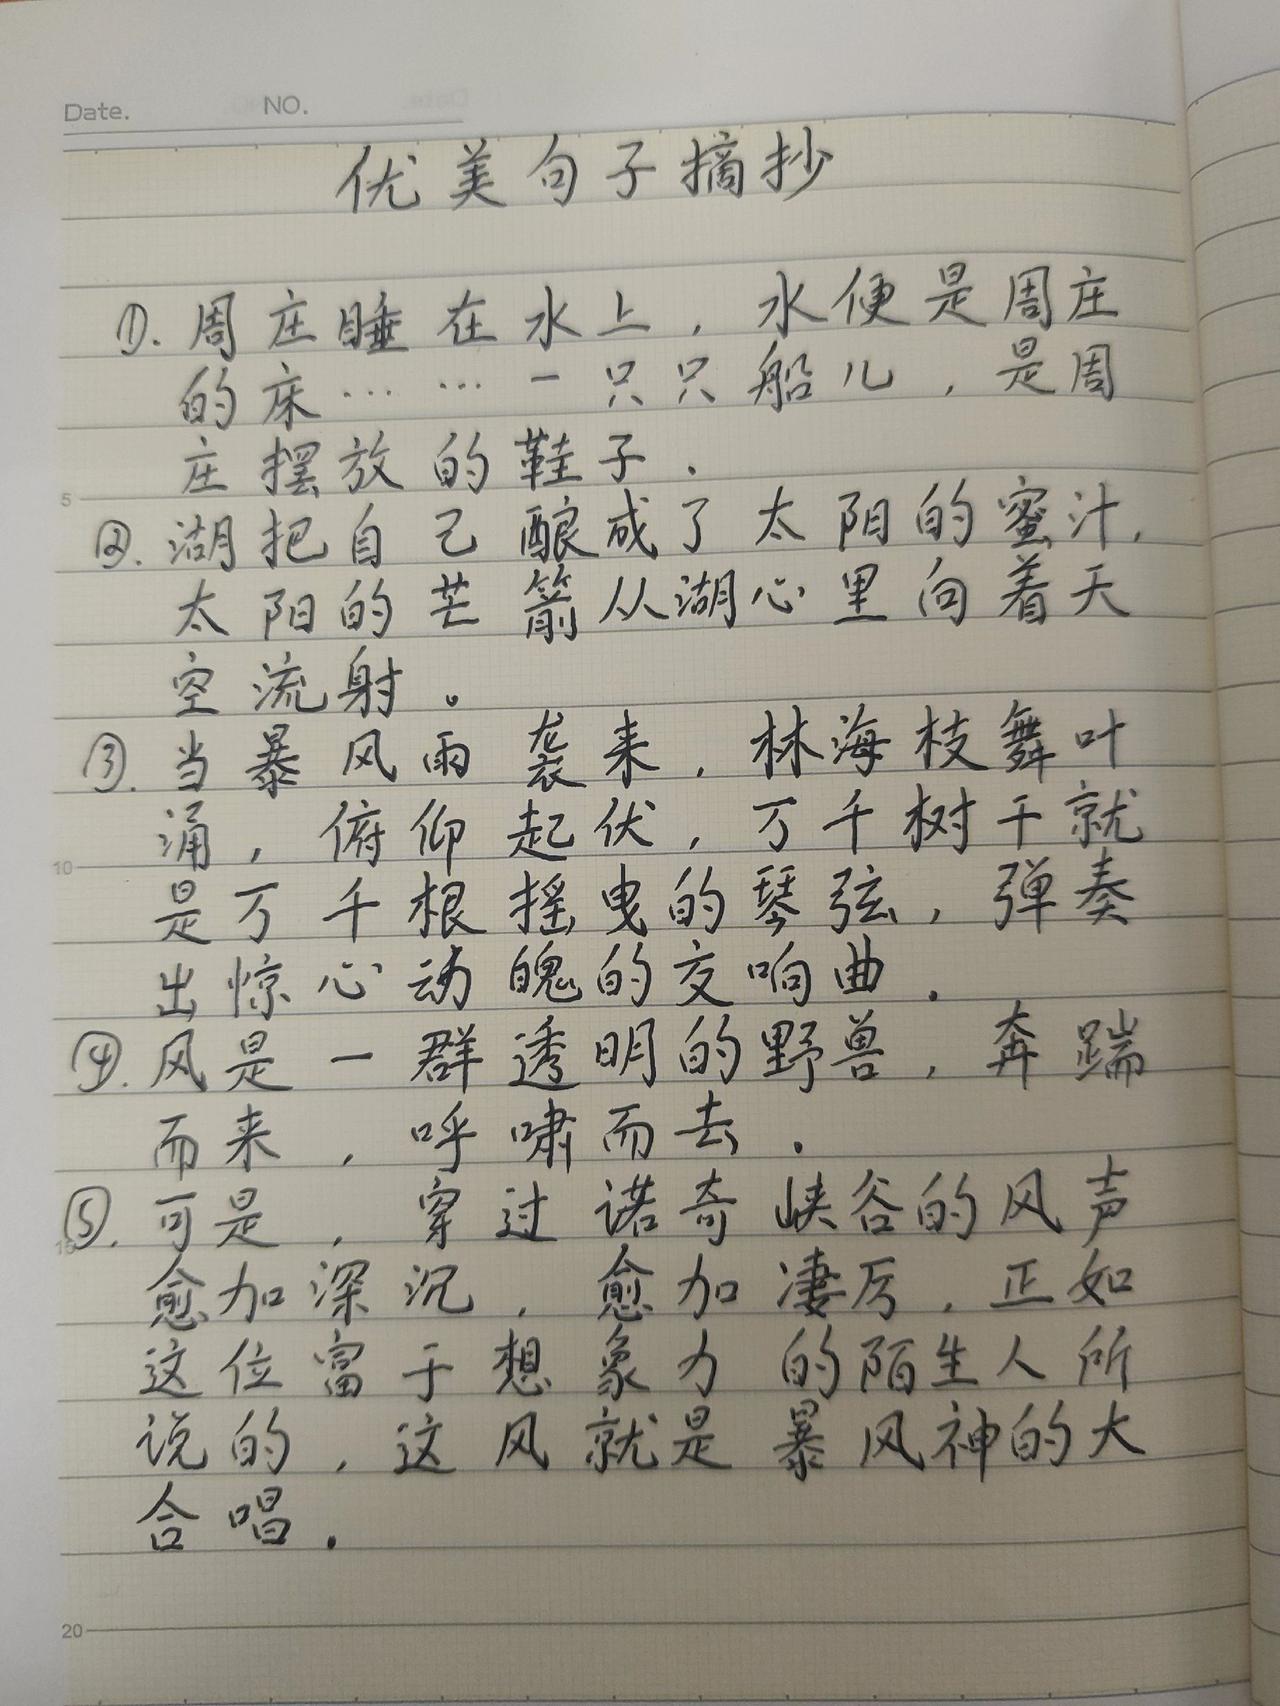 Date. NO.
优美句子摘抄
①. 周庄睡在水上，水便是周庄
的床……一只只船儿，是周
5 庄摆放的鞋子.
②. 湖把自己酿成了太阳的蜜汁,
太阳的芒箭从湖心里向着天
空流射。
③. 当暴风雨袭来，林海枝舞叶
涌，俯仰起伏，万千树干就
10
是万千根摇曳的琴弦，弹奏
出惊心动魄的交响曲.
④. 风是一群透明的野兽，奔踹
而来，呼啸而去.
⑤. 可是，穿过诺奇峡谷的风声
15
愈加深沉，愈加凄厉，正如
这位富于想象力的陌生人所
说的，这风就是暴风神的大
合唱.
20